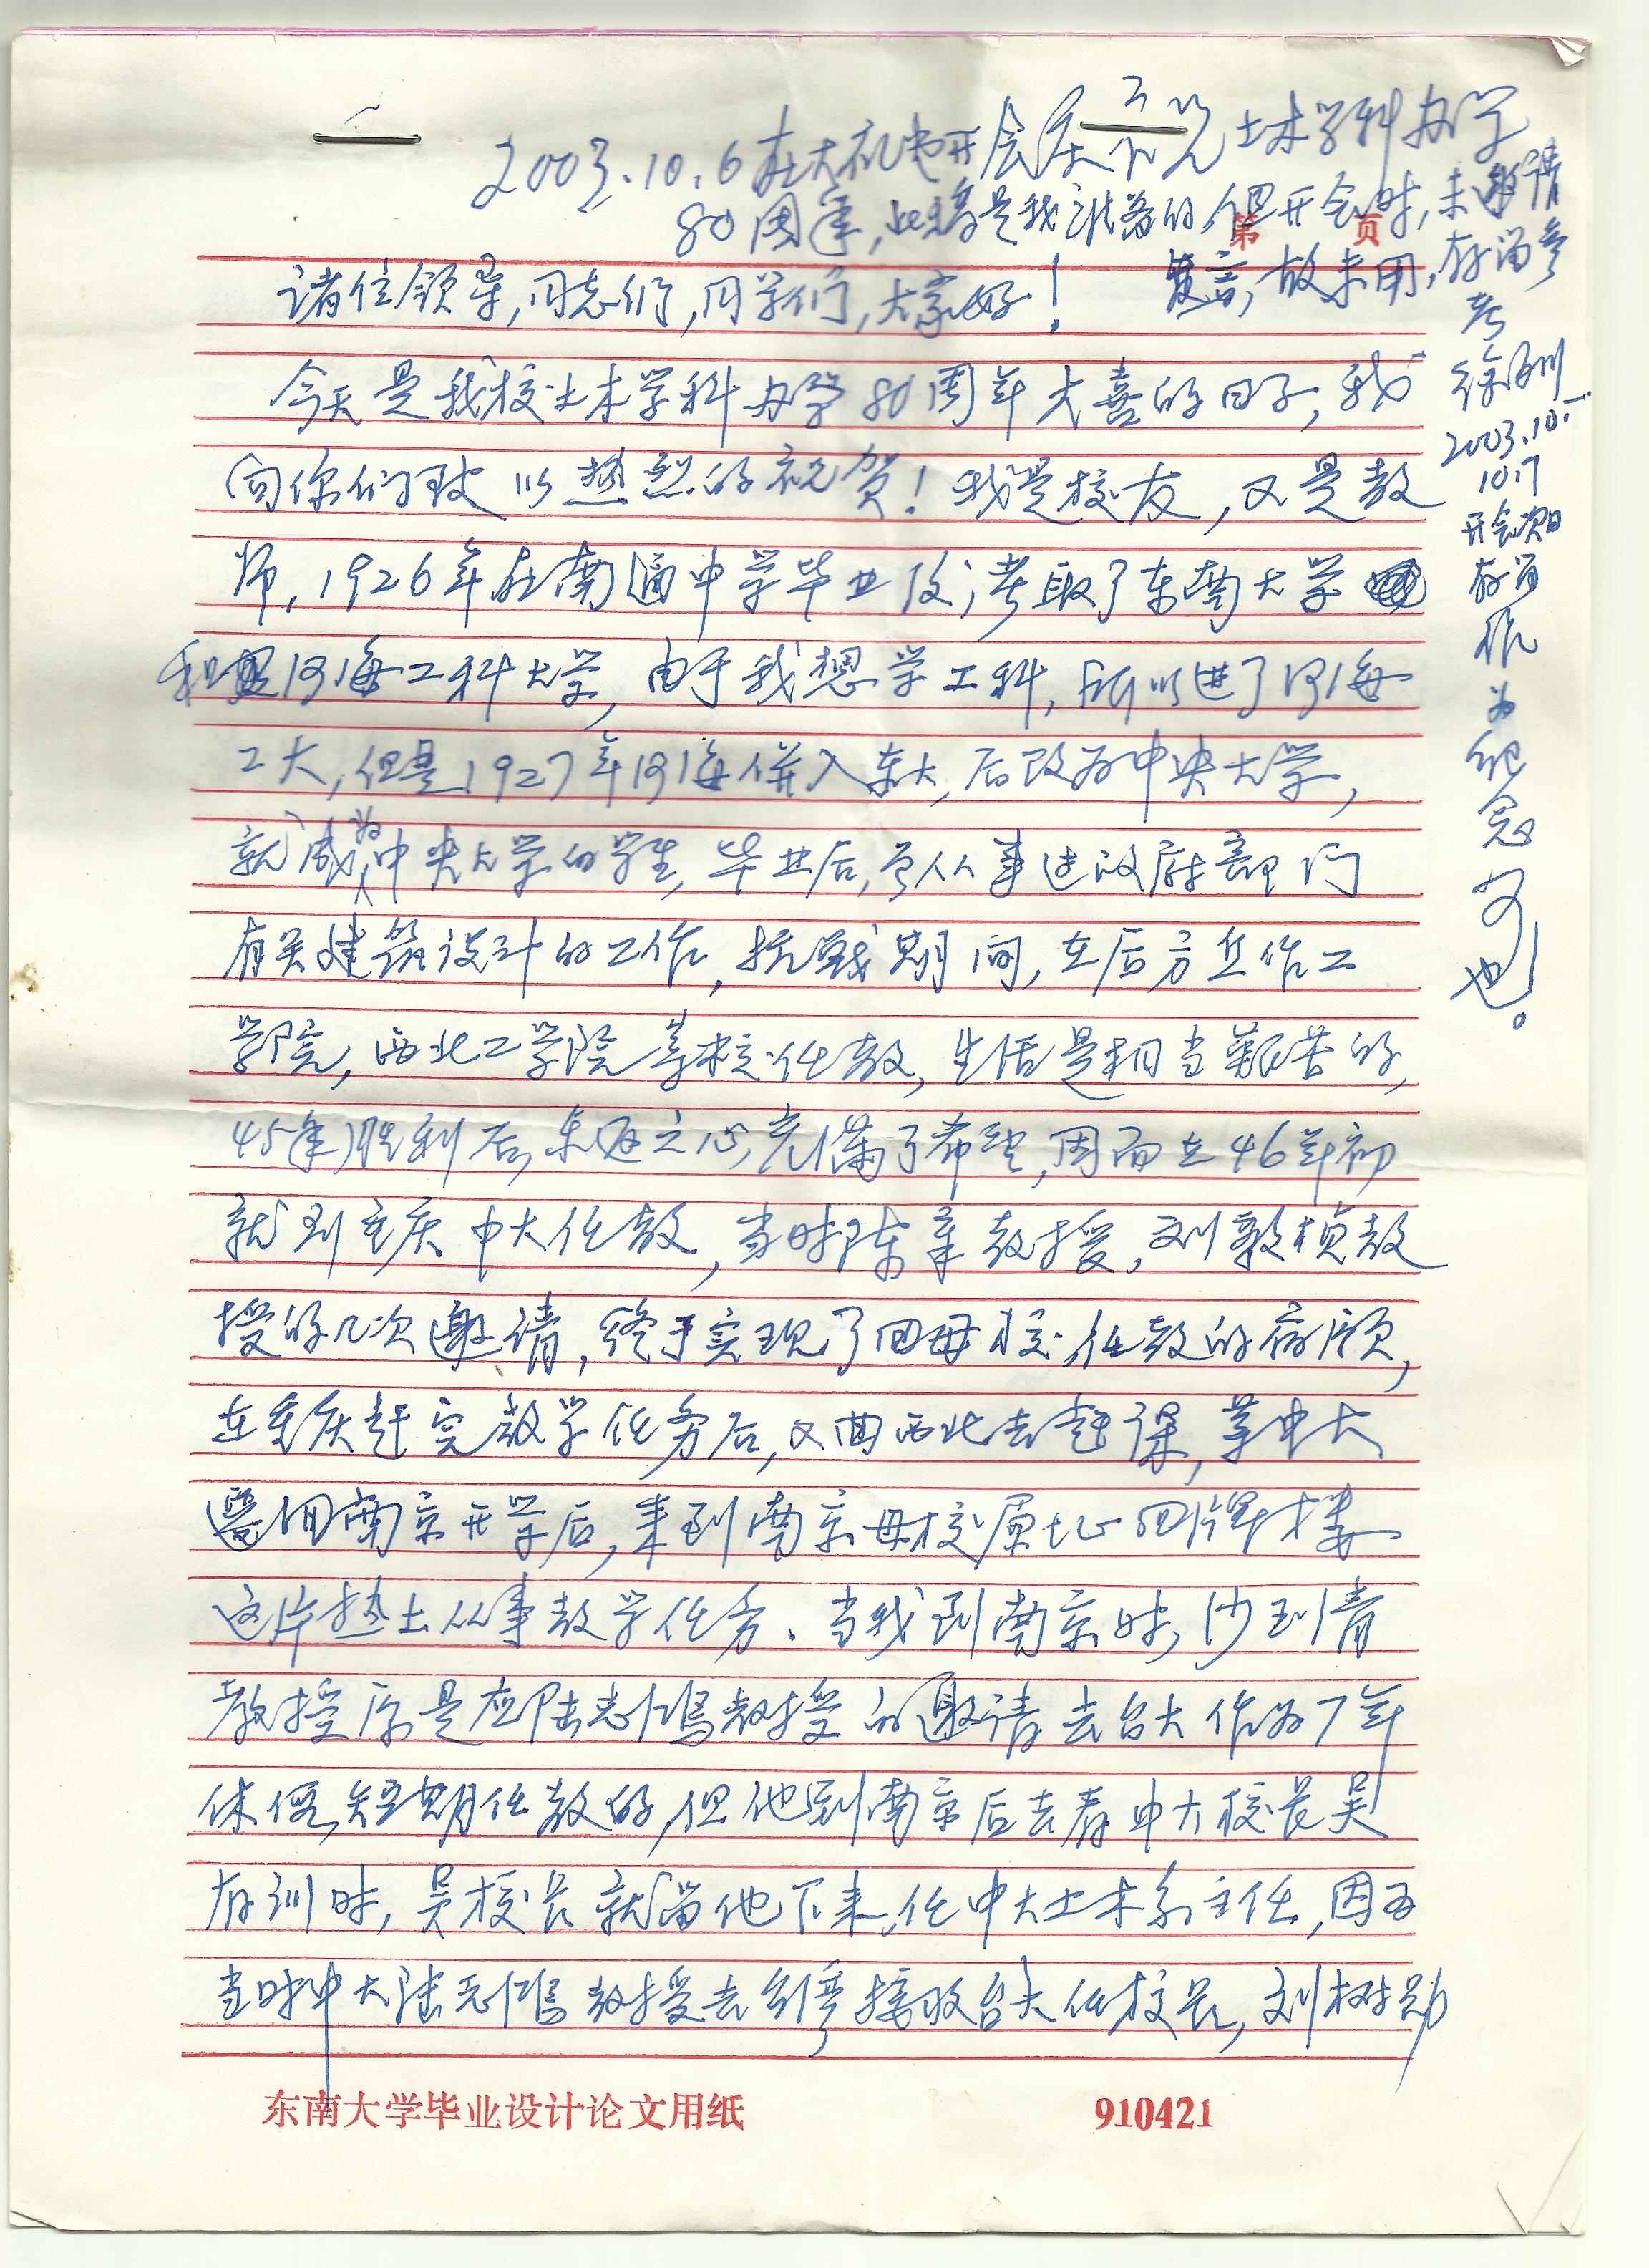 2003.10.6在大礼堂开会庆祝土木学科办学
80周年,此稿是我准备的,但开会时,未邀请
发言,故未用,存留参
考
徐
2003.10.
10.7
开会次日
存留
作
为
纪
念
可
也!
第 页
诸位领导,同志们,同学们,大家好!
今天是我校土木学科办学80周年大喜的日子,我
向你们致以热烈的祝贺!我是校友,又是教
师,1926年在南通中学毕业后,考取了东南大学
和河海工科大学,由于我想学工科,所以进了河海
工大,但是1927年河海併入东大,后改为中央大学,
就成为中央大学的学生,毕业后,曾从事过政府部门
有关建筑设计的工作,抗战期间,在后方焦作工
学院,西北工学院等校任教,生活是相当艰苦的,
45年胜利后,东返之心,充满了希望,因而在46年初
就到重庆中大任教,当时陈章教授,刘敦桢教
授的几次邀请,终于实现了回母校任教的宿愿,
在重庆赶完教学任务后,又回西北去赶课,等中大
迁回南京开学后,来到南京母校原址四牌楼
这片热土从事教学任务.当我到南京时,沙玉清
教授原是应陆志鸿教授的邀请去台大作为7年
休假,短期任教的,但他到南京后去看中大校长吴
有训时,吴校长就留他下来,任中大土木系主任,因为
当时中大陆志鸿教授去台湾接收台大任校长,刘树勋
东南大学毕业设计论文用纸 910421